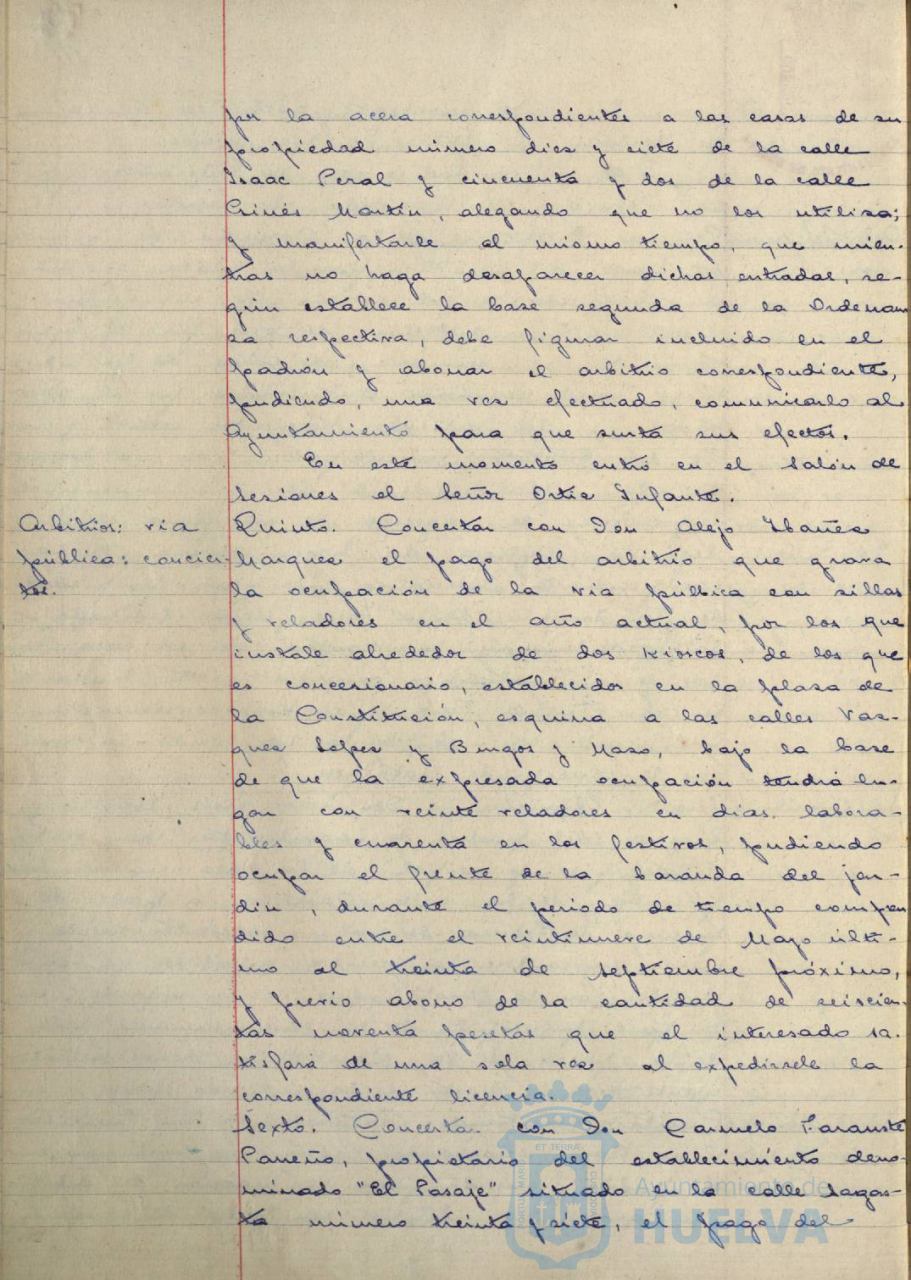 por la acera correspondientes a las casas de su
propiedad número diez y siete de la calle
Isaac Peral y cincuenta y dos de la calle
Ginés Martín, alegando que no los utiliza;
y manifestarle al mismo tiempo, que mien-
tras no haga desaparecer dichas entradas, se-
gún establece la base segunda de la Ordenan
za respectiva, debe figurar incluido en el
padrón y abonar el arbitrio correspondiente,
pudiendo, una vez efectuado, comunicarlo al
Ayuntamiento para que surta sus efectos.
En este momento entró en el Salón de
Sesiones el Señor Ortiz Infante.
Arbitrios: vía
pública: concier-
tos.
Quinto. Concertar con Don Alejo Ibañez
Marquez el pago del arbitrio que grava
la ocupación de la vía pública con sillas
y veladores en el año actual, por los que
instale alrededor de dos kioscos, de los que
es concesionario, establecidos en la plaza de
la Constitución, esquina a las calles Vaz-
quez Lopez y Burgos y Mazo, bajo la base
de que la expresada ocupación tendrá lu-
gar con veinte veladores en días labora-
bles y cuarenta en los festivos, pudiendo
ocupar el frente de la baranda del jar-
din, durante el periodo de tiempo compren
dido entre el veintinueve de Mayo últi-
mo al treinta de Septiembre próximo,
y previo abono de la cantidad de seiscien-
tas noventa pesetas que el interesado sa-
tisfará de una sola vez al expedirsele la
correspondiente licencia.
Sexto. Concertar con Don Carmelo
Parreño, propietario del establecimiento deno-
minado "El Pasaje" situado en la calle Sagas-
ta número treinta y siete, el pago del
Ayuntamiento de
HUELVA